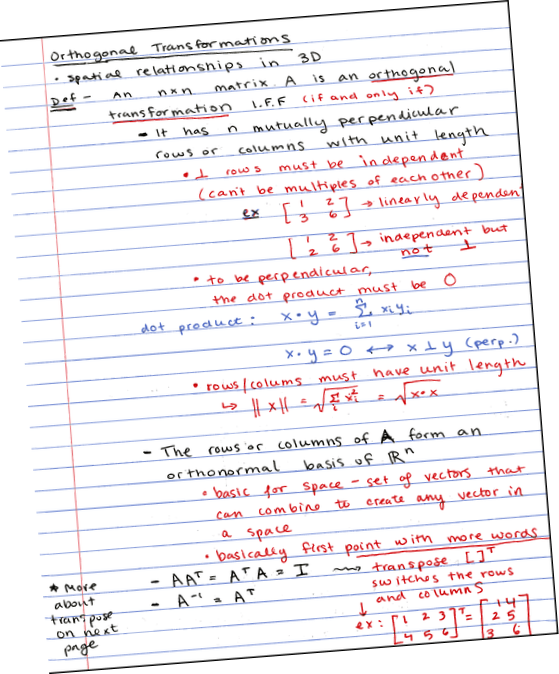 Orthogonal Transformations
• spatial relationships in 3D
Def - An nxn matrix A is an orthogonal
transformation I.F.F (if and only if)
- It has n mutually perpendicular
rows or columns with unit length
• ⊥ rows must be independent
(can't be multiples of each other)
ex [1 2
3 6] → linearly dependen
[1 2
2 6] → independent but
not ⊥
• to be perpendicular,
the dot product must be 0
dot product: x • y = n∑i=1 xiyi
x • y = 0 ↔ x ⊥ y (perp.)
• rows/colums must have unit length
↳ ||x|| = √∑i xi² = √x•x
- The rows or columns of A form an
orthonormal basis of ℝn
• basic for space - set of vectors that
can combine to create any vector in
a space
• basically first point with more words
- AAᵀ = AᵀA = I ⟿ transpose [ ]ᵀ
- A⁻¹ = Aᵀ switches the rows
and columns
↓
ex: [1 2 3
4 5 6]ᵀ = [1 4
2 5
3 6]
* More
about
transpose
on next
page